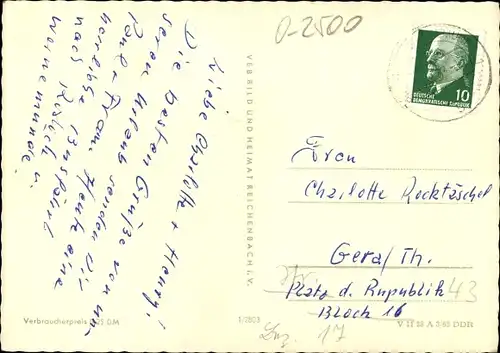 0-2500
Liebe Charlotte + Henry!
Die besten Grüße von un-
seren Urlaub senden Dir
Paul + Frau. Heute eine
herrliche Busfahrt
nach Rostock
Warnemünde u.
VEB BILD UND HEIMAT REICHENBACH i. V.
DEUTSCHE
DEMOKRATISCHE REPUBLIK
10
Frau
Charlotte Recktäschel
Gera/Th.
Str.
Platz d. Republik 43
Block 16
17
Verbraucherpreis DM
1/2803
V 11 28 A 2/65 DDR